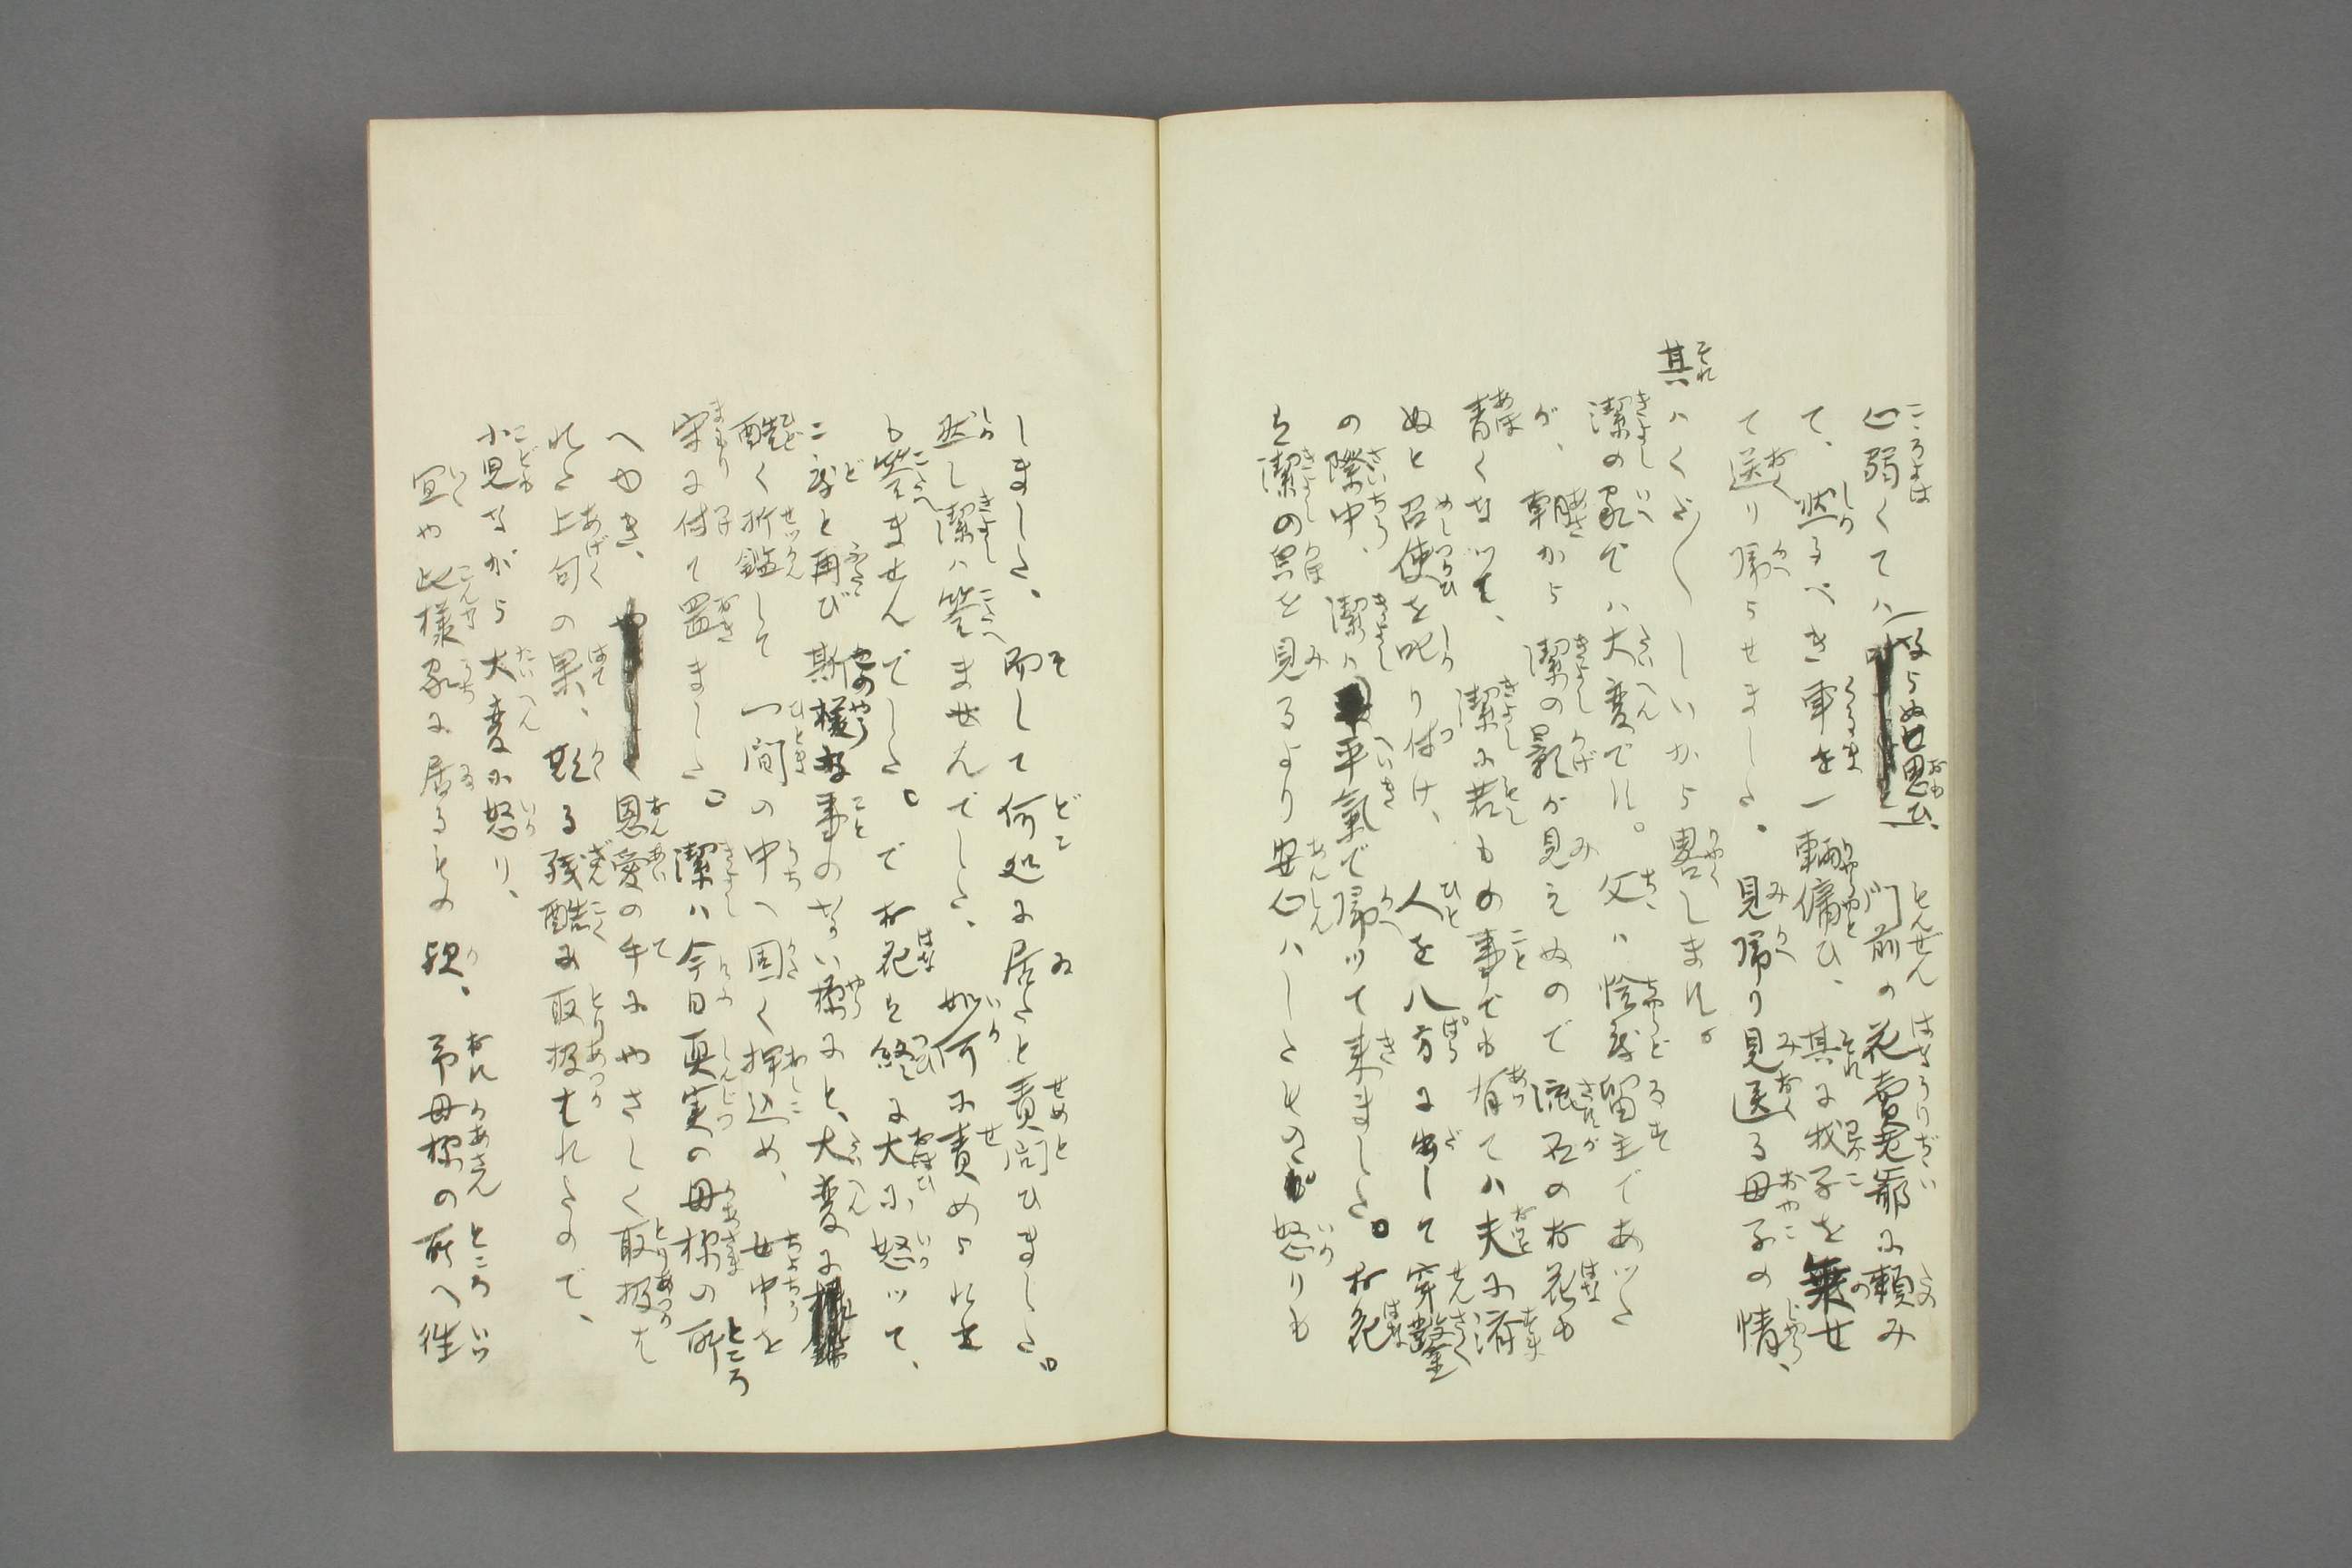 心弱くてハならぬと思ひ、門前の花賣老爺に頼み
て、然るべき車を一輛傭ひ、其に我子を乗せ
て送り帰らせました。見帰り見送る母子の情、
其ハくだ〱しいから畧します。
潔の家でハ大変です。父ハ恰度留主であッた
が、朝から潔の影が見えぬので流石のお花も
青くなッて、潔に若もの事でも有てハ夫に済
ぬと召使を叱り付け、人を八方に出して穿鑿
の際中、潔ハ平氣で帰ッて来ました。お花
ハ潔の㒵を見るより安心ハしたものゝ怒りも
しました、而して何処に居たと責問ひました。
然し潔ハ答ませんでした、如何に責められて
も答ませんでした。でお花ハ終に大に怒ッて、
二度と再び斯様な事のない様にと、大変に
酷く折鑑して一間の中へ固く押込め、女中を
守に付て置ました。潔ハ今日真実の母様の所
へゆき、恩愛の手にやさしく取扱は
れた上句の果、斯る残酷に取扱はれたので、
小児ながら大変に怒り、
宜や此様家に居るものか、お母様の所へ往